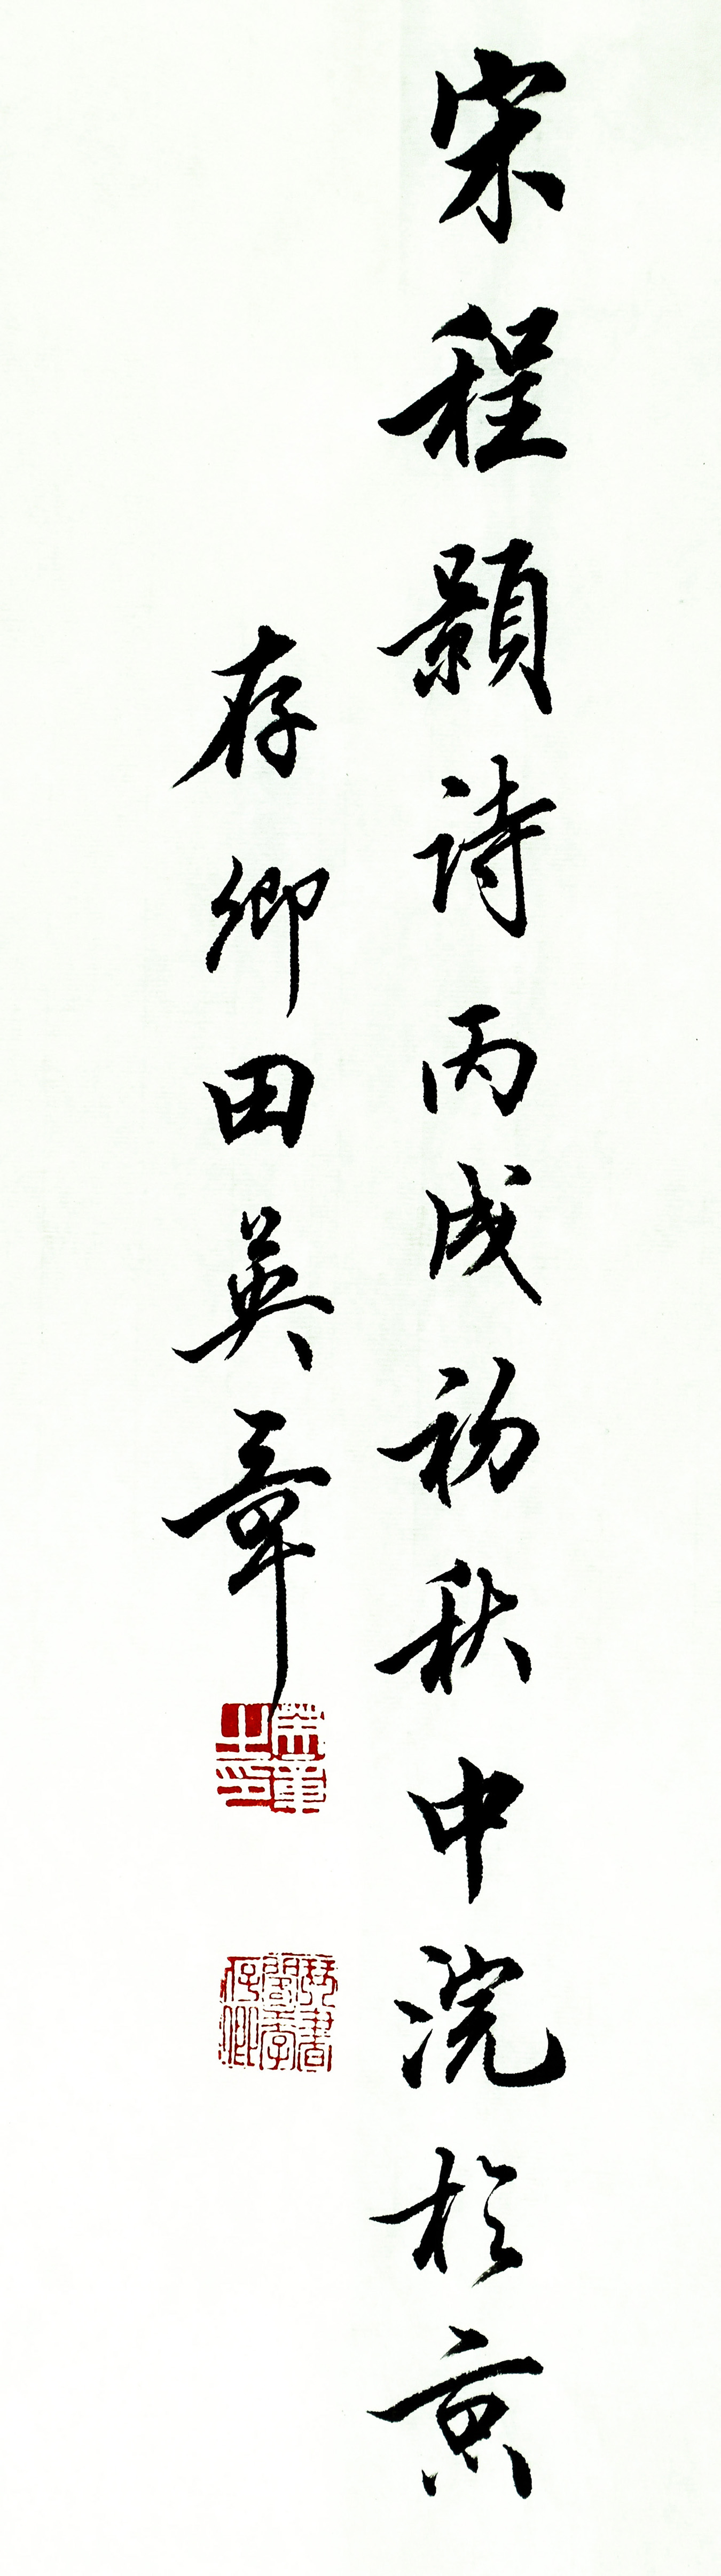 宋程顥詩丙戌初秋中浣於京
存卿田英章
英章之印